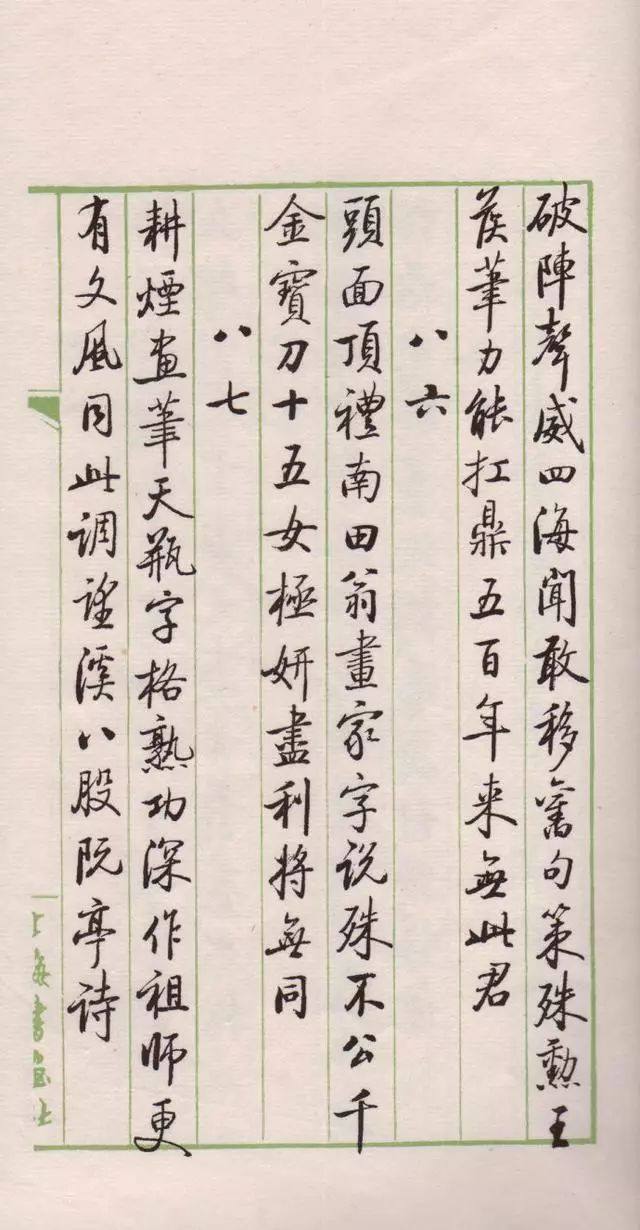 破陣聲威四海聞敢移舊句策殊勳王
侯筆力能扛鼎五百年来無此君
八六
頭面頂禮南田翁畫家字说殊不公千
金寶刀十五女極妍盡利將無同
八七
耕煙畫筆天瓶字格熟功深作祖師更
有文風同此調望溪八股阮亭詩
上海書畫社